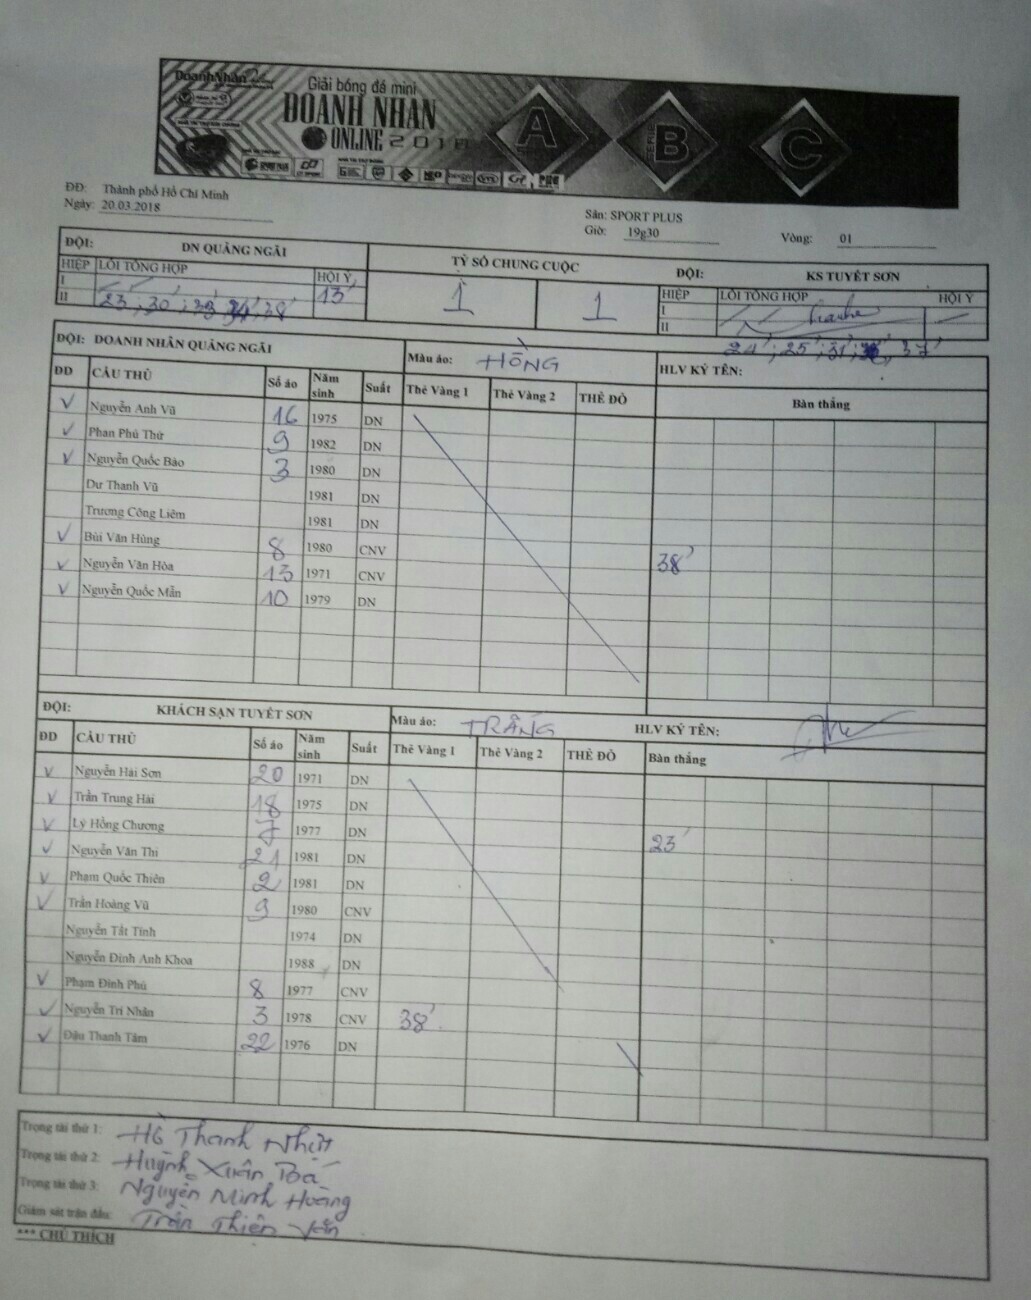 DoanhNhân
Giải bóng đá mini
DOANH NHÂN
ONLINE 2018
A
B
C
ĐĐ: Thành phố Hồ Chí Minh
Ngày: 20.03.2018
Sân: SPORT PLUS
Giờ: 19g30 Vòng: 01
ĐỘI: DN QUẢNG NGÃI TỶ SỐ CHUNG CUỘC ĐỘI: KS TUYẾT SƠN
HIỆP LỖI TỔNG HỢP HỘI Ý 1 1 HIỆP LỖI TỔNG HỢP HỘI Ý
I 13' I
II 23', 30', 33', 34', 38' II
24', 25', 31', 37'
ĐỘI: DOANH NHÂN QUẢNG NGÃI Màu áo: HỒNG HLV KÝ TÊN:
ĐD CẦU THỦ Số áo Năm sinh Suất Thẻ Vàng 1 Thẻ Vàng 2 THẺ ĐỎ Bàn thắng
V Nguyễn Anh Vũ 16 1975 DN
V Phan Phú Thứ 9 1982 DN
V Nguyễn Quốc Bảo 3 1980 DN
Dư Thanh Vũ 1981 DN
Trương Công Liêm 1981 DN
V Bùi Văn Hùng 8 1980 CNV 38'
V Nguyễn Văn Hòa 13 1971 CNV
V Nguyễn Quốc Mẫn 10 1979 DN
ĐỘI: KHÁCH SẠN TUYẾT SƠN Màu áo: TRẮNG HLV KÝ TÊN:
ĐD CẦU THỦ Số áo Năm sinh Suất Thẻ Vàng 1 Thẻ Vàng 2 THẺ ĐỎ Bàn thắng
V Nguyễn Hải Sơn 20 1971 DN
V Trần Trung Hải 18 1975 DN
V Lý Hồng Chương 7 1977 DN 23'
V Nguyễn Văn Thi 21 1981 DN
V Phạm Quốc Thiên 2 1981 DN
V Trần Hoàng Vũ 9 1980 CNV
Nguyễn Tất Tính 1974 DN
Nguyễn Đình Anh Khoa 1988 DN
V Phạm Đình Phú 8 1977 CNV
V Nguyễn Trí Nhân 3 1978 CNV 38'
V Đậu Thanh Tâm 22 1976 DN
Trọng tài thứ 1: Hồ Thanh Nhựt
Trọng tài thứ 2: Huỳnh Xuân
Trọng tài thứ 3: Nguyễn Minh Hoàng
Giám sát trận đấu: Trần Thiện
*** CHÚ THÍCH